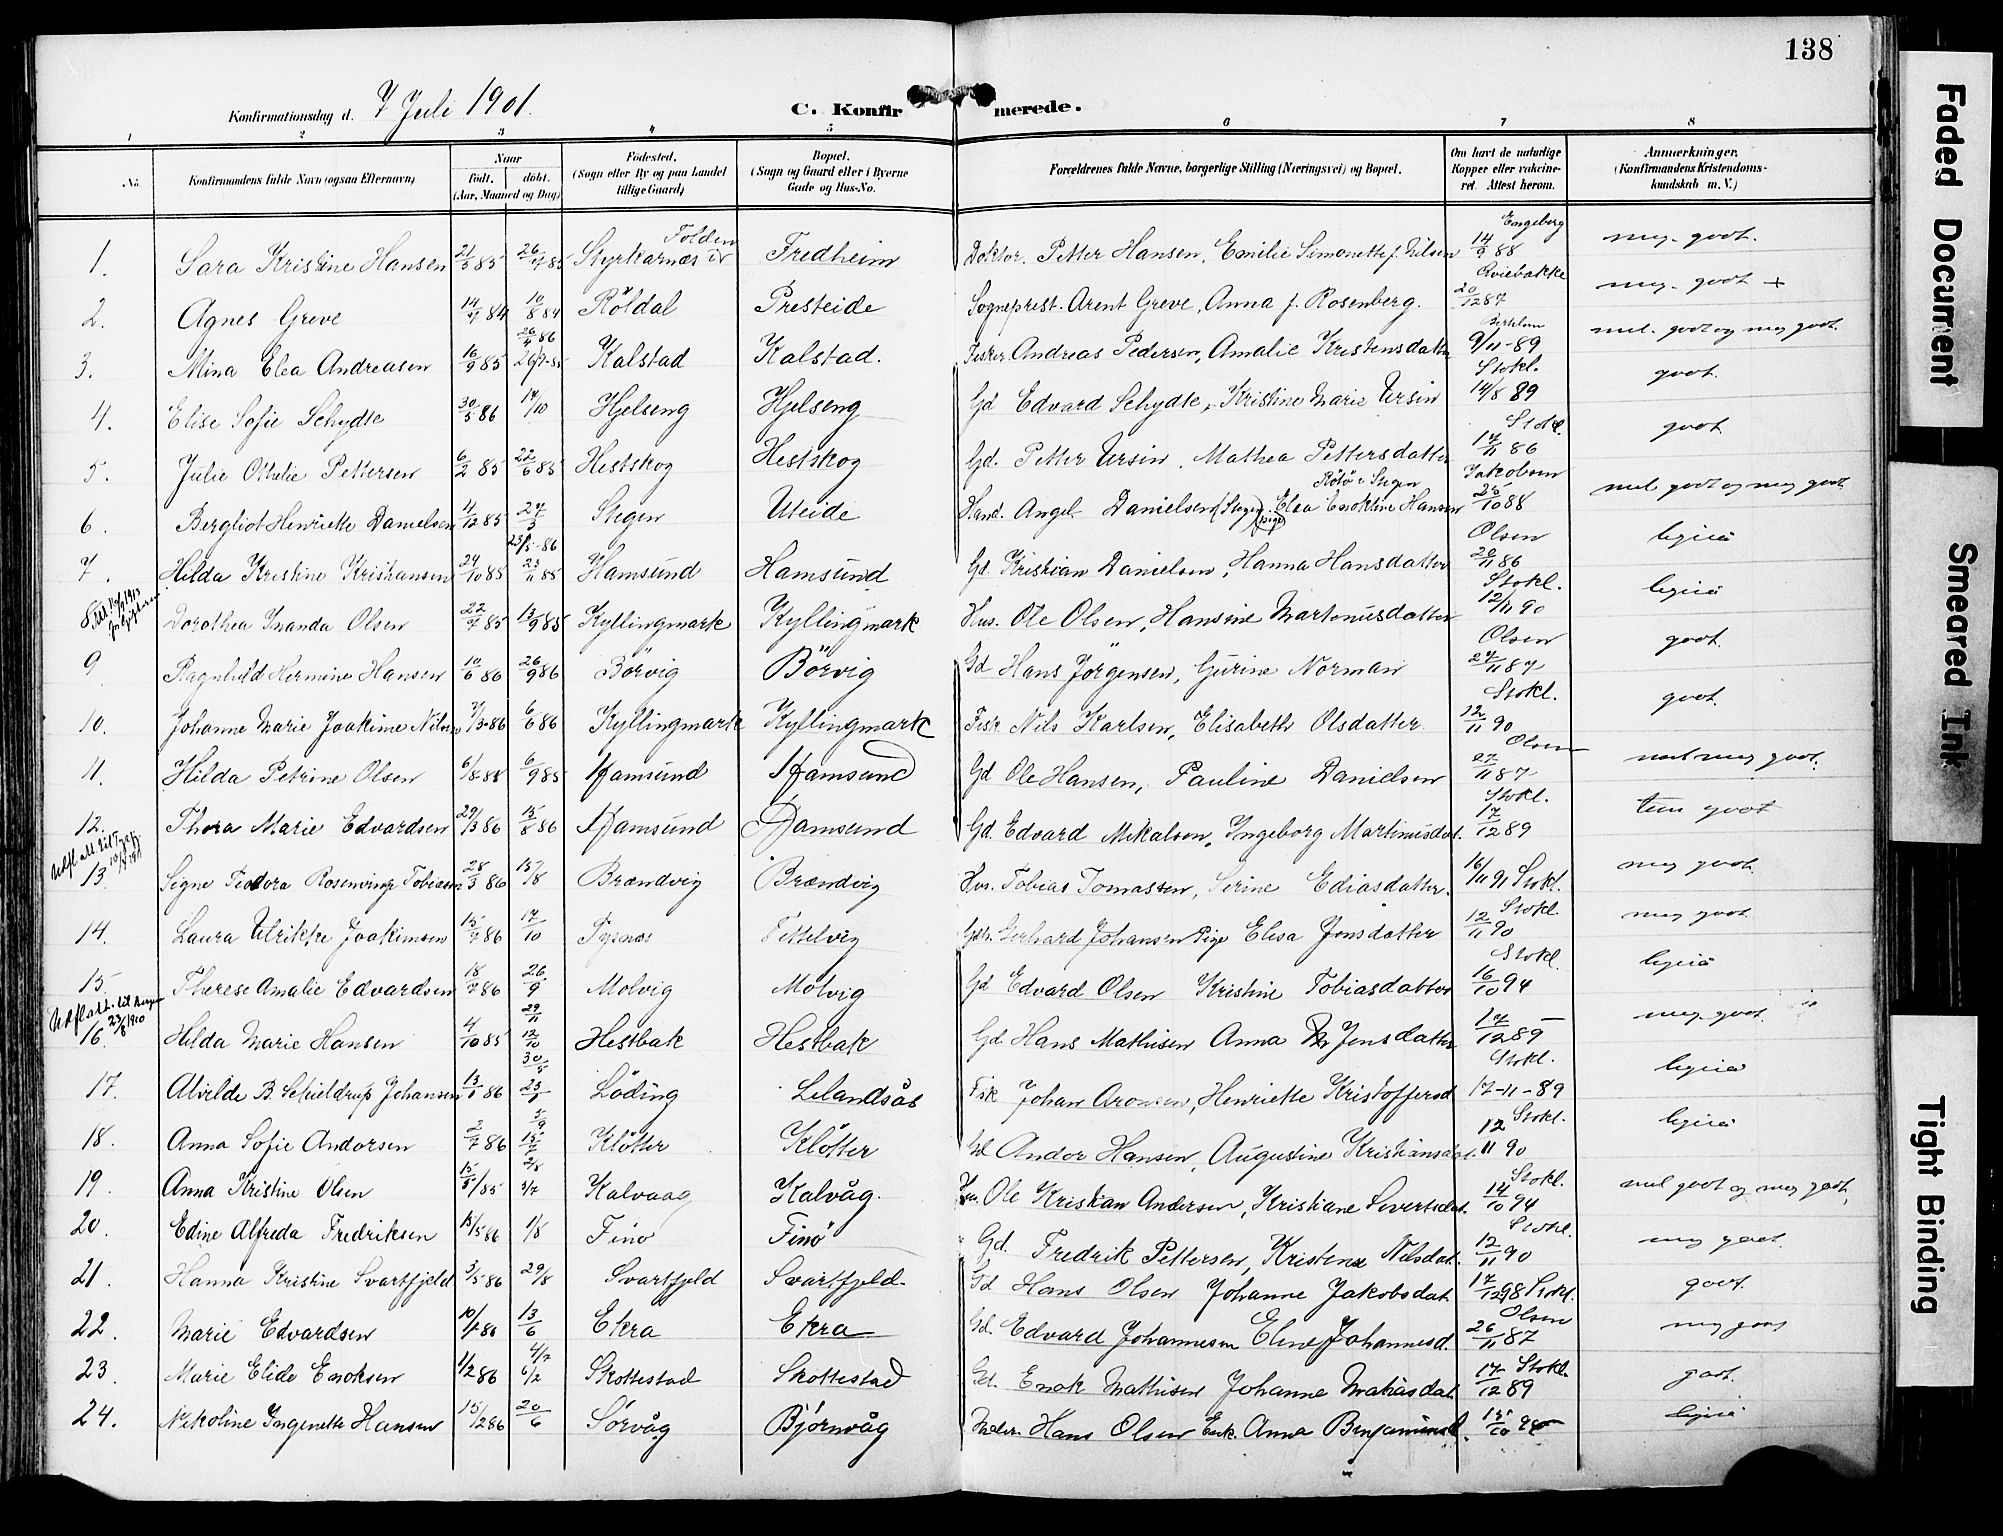 138
Konfirmationsdag d. 7 Juli 1901. C. Konfirmerede.
1 2 3 4 5 6 7 8
No. Konfirmandens fulde Navn (ogsaa Efternavn) Naar født. døbt. (Aar, Maaned og Dag) Fødested. (Sogn eller By og paa Landet tillige Gaard) Bopæl. (Sogn og Gaard eller i Byerne Gade og Hus-No. Forældrenes fulde Navne, borgerlige Stilling (Næringsvei) og Bopæl. Om havt de naturlige Kopper eller vakcineret. Attest herom. Anmærkninger. (Konfirmandens Kristendomskundskab m. V.)
1. Sara Kristine Hansen 21/5 85 26/7 85 Styrkarnæs i Folden Fredheim Doktor. Petter Hansen, Emilie Simonette f. Nilsen Engeberg 14/9 88 meg. godt.
2. Agnes Greve 14/7 84 10/8 84 Röldal Presteide Sogneprest. Arent Greve, Anna f. Rosenberg. 20/12 87 meg. godt +
3. Mina Elea Andreasen 16/9 85 26/4 86 Kalstad Kalstad. Fisker Andreas Pedersen, Amalie Kristensdatter 9/11-89 mel. godt og meg godt.
4. Elise Sofie Schydte 30/5 86 17/10 Hjelseng Hjelseng Gd Edvard Schydte, Kristine Marie Ursin Stokl. 14/8 89 godt.
5. Julie Othelie Pettersen 6/2 85 22/6 85 Hestskog Hestskog Gd. Petter Ursin, Mathea Pettersdatter Stokl. 17/11 86 godt.
6. Bergliot Henriette Danielsen 4/12 85 27/3 Stegen Uteide Hand. Angel Danielsen (Stegen). pige Elea Enoktine Hansen Rötö i Stegen Jakobsen 25/10 88 mel godt og meg godt
7. Hilda Kristine Kristiansen 24/10 85 23/5-86 23/11 85 Hamsund Hamsund Gd. Kristian Danielsen, Hanna Hansdatter Olsen 20/11 86 ligesaa
8. Dorothea Inanda Olsen 22/7 85 13/9 85 Kyllingmark Kyllingmark Hus. Ole Olsen, Hansine Martinusdatter Stokl. 12/11 90 ligesaa
9 Ragnhild Hermine Hansen 10/6 86 26/9 86 Börvig Börvig Gd Hans Jörgensen, Gurine Norman Olsen 27/11 87 godt.
10. Johanne Marie Joakime Nilsen 7/3-86 6/6 86 Kyllingmark Kyllingmark Fisk Nils Karlsen, Elisabeth Olsdatter Stokl. 12/11 90 godt.
11. Hilda Petrine Olsen 6/8 85 6/9 85 Hamsund Hamsund Gd Ole Hansen, Pauline Danielsen Olsen 27/11 87 mel meg godt.
12. Thora Marie Edvardsen 29/3 86 15/8 86 Hamsund Hamsund Gd. Edvard Mikalsen, Ingeborg Martinusdat. Stokl. 17/12 89 tem godt
13 Signe Teodora Rosenvinge Tobiasen 28/3 86 15/8 Brændvig Brændvig Hus. Tobias Tomassen, Serine Ediasdatter. 16/11 91 Stokl. meg godt.
14. Laura Ulrikke Joakimsen 15/7 86 17/10 Tysnæs Tittelvig Gdb. Gerhard Johansen Pige Elisa Jensdatter Stokl. 12/11 90 meg godt.
15. Therese Amalie Edvardsen 18/7 86 26/9 Molvig Molvig Gd Edvard Olsen Kristine Tobiasdatter Stokl. 16/10 94 ligesaa
Udfl att. til Bergen 23/8 1910
16. Hilda Marie Hansen 4/10 85 29/11 12/10 Hestbak Hestbak Gd Hans Mathisen Anna Jensdatter 17/12 89 meg. godt.
17. Alvilde B. Schieldrup Johansen 13/1 86 30/5 Löding Lelandsås Fisk Johan Aronsen, Henriette Kristoffersd Stokl. 17-11-89 ligesaa
18. Anna Sofie Andorsen 2/7 86 5/9 Klötter Klötter Gd Andor Hansen, Augustine Kristiansdat. Stokl. 12/11 90 ligesaa
19. Anna Kristine Olsen 15/5 85 Kalvaag Kalvåg. Hus. Ole Kristian Andersen, Kristiane Sivertsdat. Stokl. 14/10 94 mel godt og meg godt.
20. Edine Alfreda Fredriksen 15/5 86 1/8 Finö Finö Gd. Fredrik Pettersen, Kristense Nilsdat. Stokl. 12/11 90 meg godt.
21. Hanna Kristine Svartfjeld 3/5 86 29/8 Svartfjeld Svartfjeld Gd Hans Olsen Johanne Jakobsdat. 17/12 98 Stokl. godt.
22. Marie Edvardsen 13/6 Ekra Ekra Gd. Edvard Johannesen Eline Johannesd. Olsen 26/11 87 meg godt
23. Marie Elide Enoksen 1/2 86 4/7 Skottestad Skottestad Gd. Enok Mathisen Johanne Matiasdat. Stokl. 17/12 89 godt.
24. Nikoline Ingenette Hansen 15/12 86 20/6 Sörvåg Björnvåg Hans Olsen Enk. Anna Benjaminsd. 15/10 ligesaa
Faded Document
Smeared Ink
Tight Binding